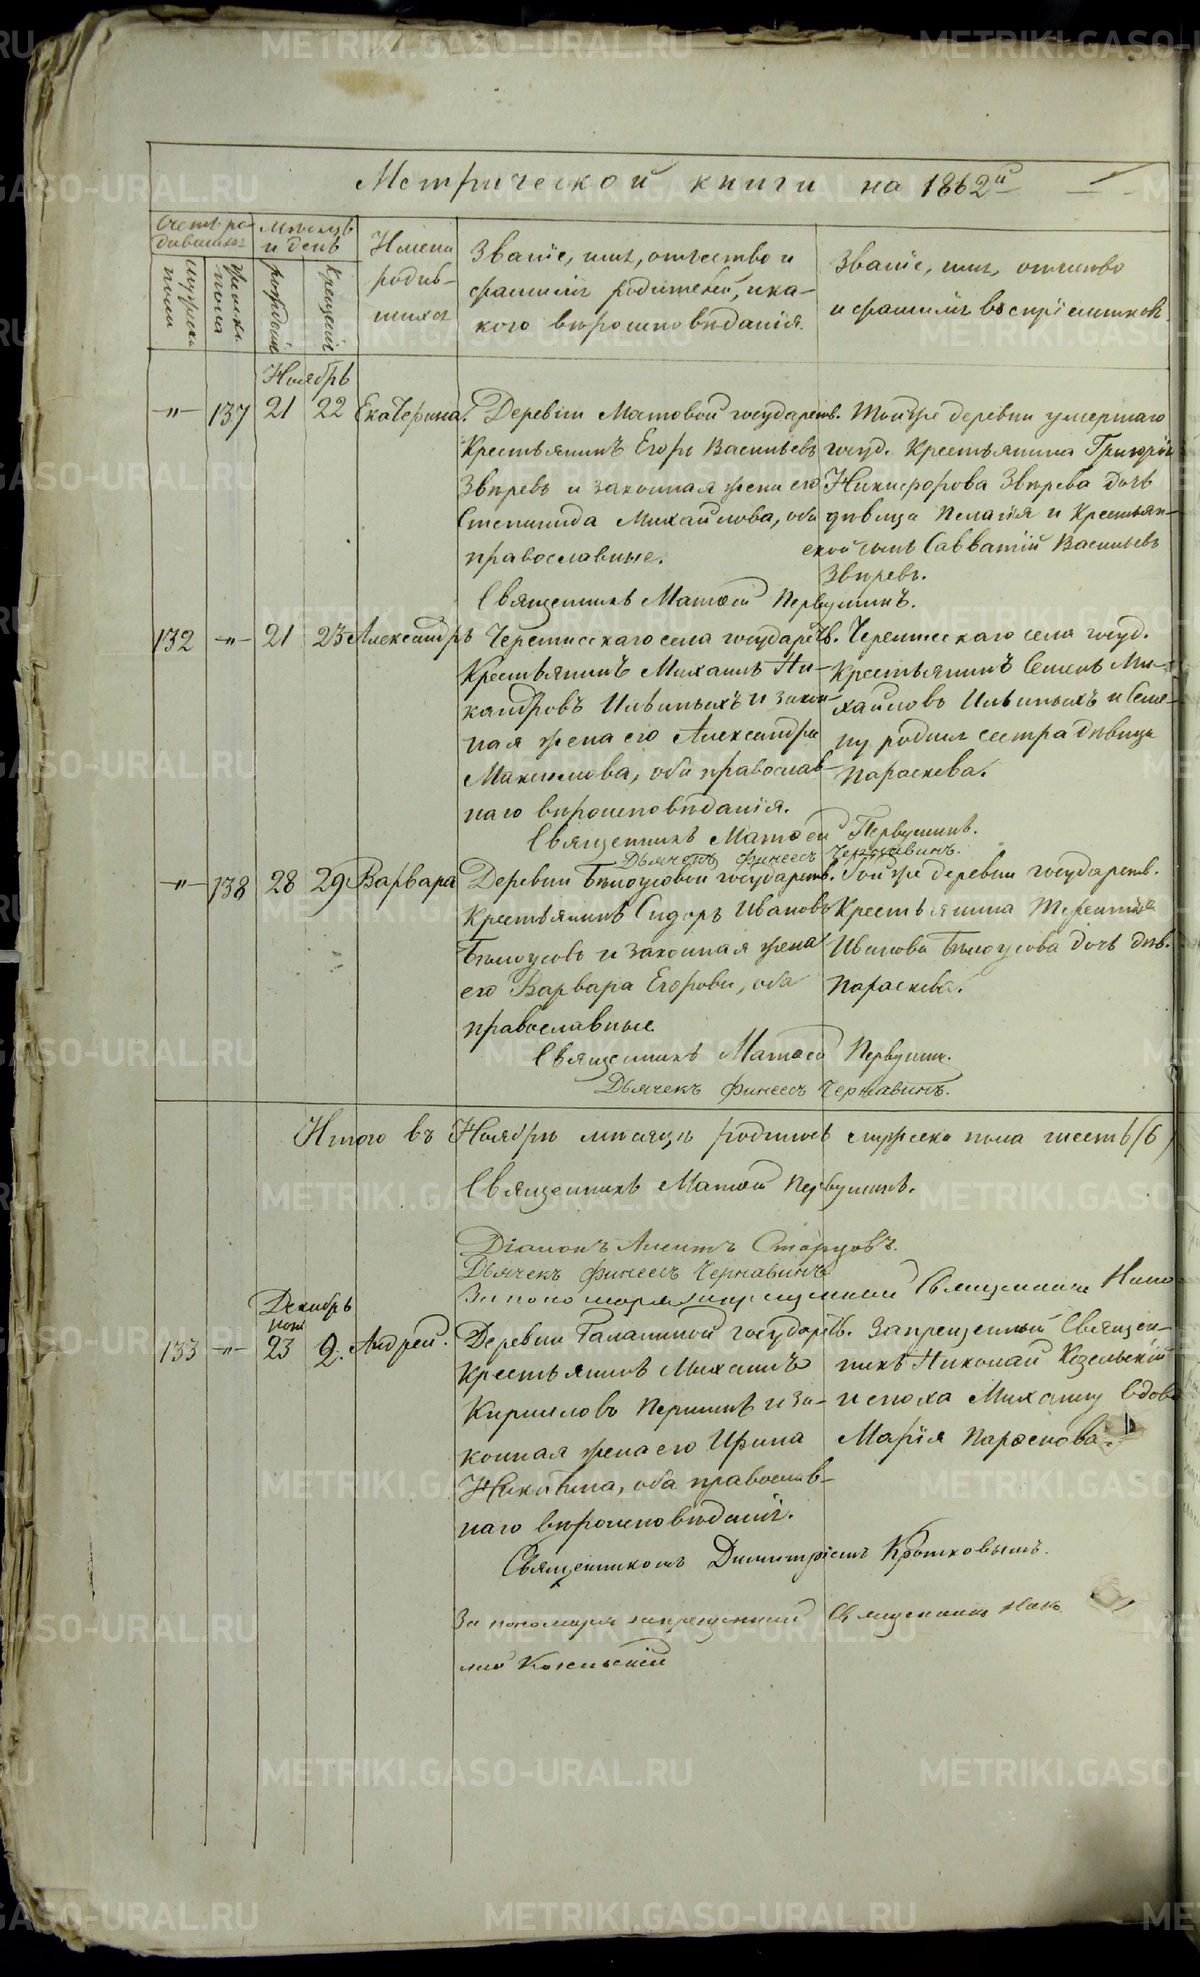 Метрической книги на 1862й
Счетъ ро-
дившихся
Мѣсяцъ
и день
Имена
родив-
шихся
Званіе, имя, отчество и
фамилія родителей, и ка-
кого вѣроисповѣданія.
Званіе, имя, отчество
и фамилія воспріемниковъ
мужеска
пола
женска
пола
рожденія
крещенія
Ноябрь
-"- 137 21 22 Екатерина. Деревни Матовой государств. Той же деревни умершаго
Крестьянинъ Егоръ Васильевъ госуд. Крестьянина Григорія
Звѣревъ и законная жена его Никифорова Звѣрева дочь
Степанида Михайлова, оба дѣвица Пелагія и Крестьян-
православные. ской сынъ Савватій Васильевъ
Звѣревъ.
Священникъ Матѳей Первушинъ.
132 -"- 21 23 Александръ Черемисскаго села государств. Черемисскаго села госуд.
Крестьянинъ Михаилъ Ни- Крестьянинъ Семенъ Ми-
кандровъ Ильиныхъ и закон- хайловъ Ильиныхъ и Семе-
ная жена его Александра ну родная сестра дѣвица
Максимова, оба православ- Параскева.
наго вѣроисповѣданія.
Священникъ Матѳей Первушинъ.
Дьячекъ Финеесъ Чернавинъ.
-"- 138 28 29 Варвара Деревни Бѣлоусовой государств. Той же деревни государств.
Крестьянинъ Сидоръ Ивановъ Крестьянина Терентія
Бѣлоусовъ и законная жена Иванова Бѣлоусова дочь дѣв.
его Варвара Егорова, оба Параскева.
православные
Священникъ Матѳей Первушин.
Дьячекъ Финеесъ Чернавинъ.
Итого въ Ноябрѣ мѣсяцѣ родилось мужеска пола шесть (6)
Священникъ Матѳей Первушинъ.
Діаконъ Старцовъ.
Дьячекъ Финеесъ Чернавинъ
За пономаря запрещенный Священникъ Нико
Декабрь
ноя
133 -"- 23 2. Андрей. Деревни Галаниной государств. Запрещенный Священ-
Крестьянинъ Михаилъ никъ Николай Козельскій
Кириловъ Першинъ и за- и сноха Михаилу вдова
конная жена его Ирина Марія
Никитина, оба православ-
наго вѣроисповѣданія.
Священникомъ Димитріемъ Кротковымъ.
За пономаря запрещенный Священникъ Нико
лай Козельскій
METRIKI.GASO-URAL.RU